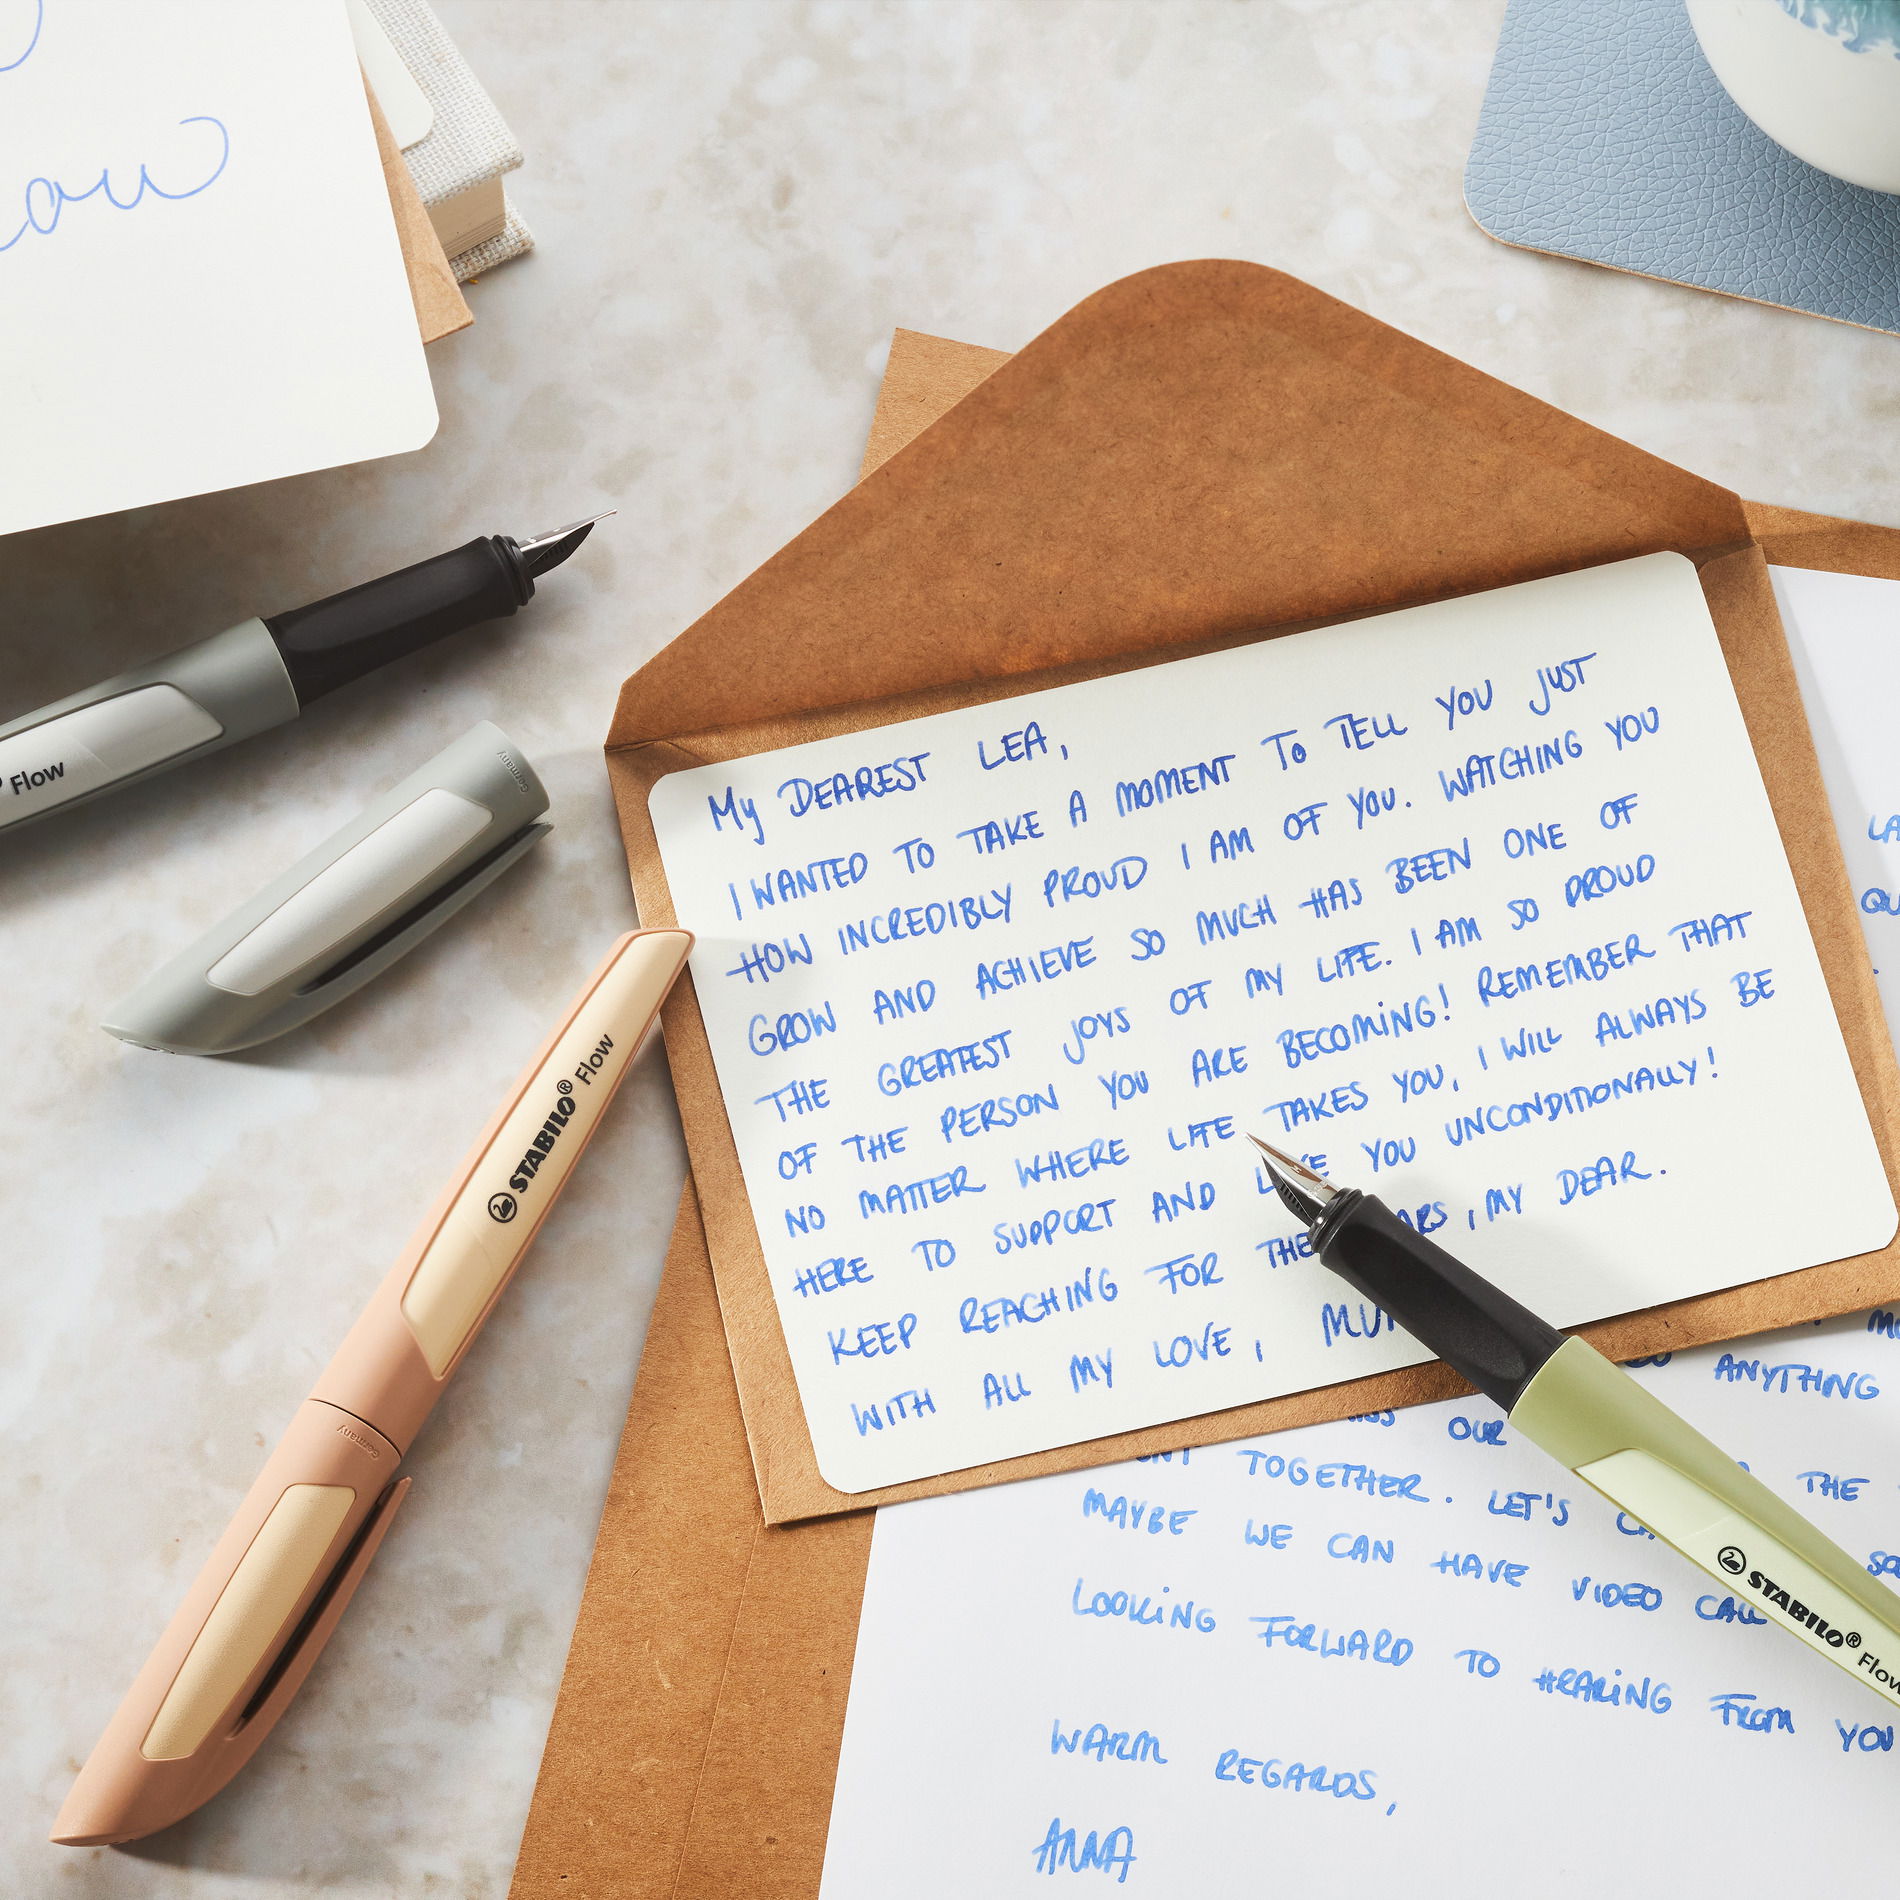 Flow
Germany
STABILO® Flow
Germany
My DEAREST LEA,
I WANTED TO TAKE A MOMENT TO TELL YOU JUST
HOW INCREDIBLY PROUD I AM OF YOU. WATCHING YOU
GROW AND ACHIEVE SO MUCH HAS BEEN ONE OF
THE GREATEST JOYS OF MY LIFE. I AM SO PROUD
OF THE PERSON YOU ARE BECOMING! REMEMBER THAT
NO MATTER WHERE LIFE TAKES YOU, I WILL ALWAYS BE
HERE TO SUPPORT AND YOU UNCONDITIONALLY!
KEEP REACHING FOR , MY DEAR.
WITH ALL MY LOVE,
ANYTHING
OUR
TOGETHER. LET'S THE
MAYBE WE CAN HAVE VIDEO CALL
LOOKING FORWARD TO HEARING FROM YOU
WARM REGARDS,
ANNA
STABILO® Flow